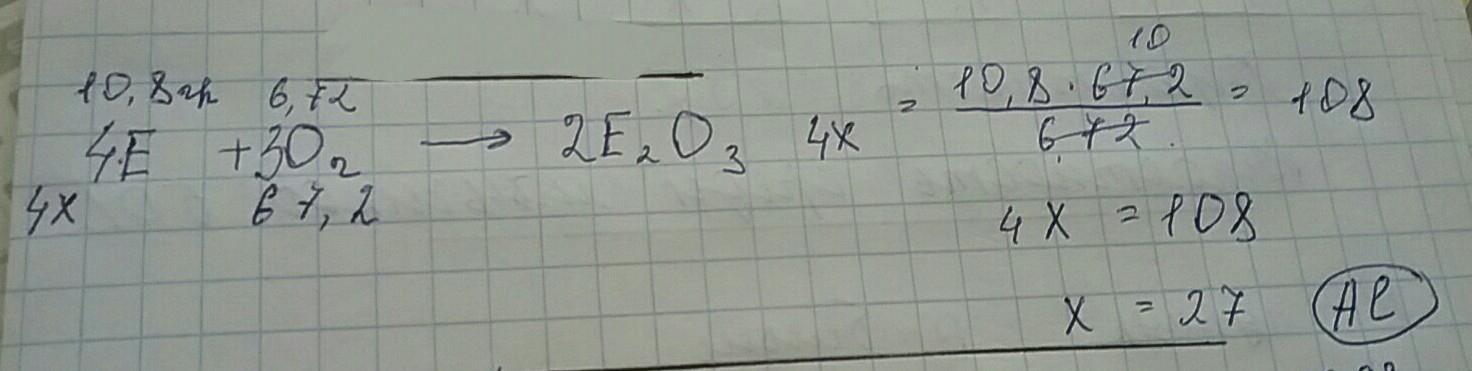 10,8гр 6,72
4E + 3O₂ → 2E₂O₃
4x 67,2
10
4x = 10,8 · 67,2 / 6,72 = 108
4x = 108
x = 27 Al